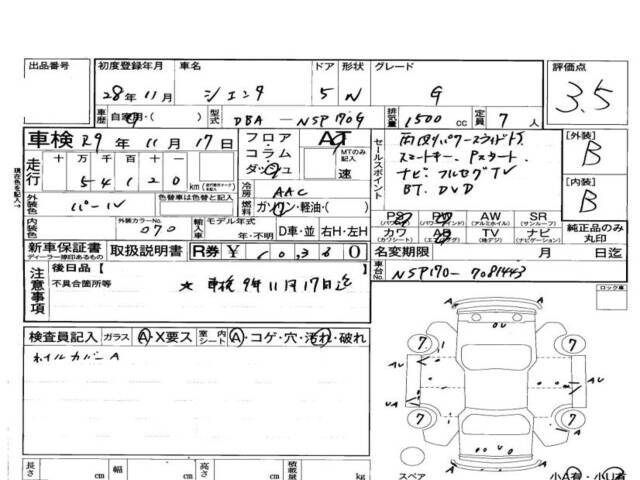 出品番号 初度登録年月 車名 ドア 形状 グレード 評価点
28年11月 シエンタ 5 N G 3.5
車歴 自家用・( ) 型式 DBA-NSP170G 排気量 1500 cc 定員 7 人
車検 R9 年 11 月 17 日
フロア コラム ダッシュ AT MTのみ記入 速
現在色を記入→
走行 十万千百十 54120 km
セールスポイント
両側パワースライドドア
スマートキー、Pスタート
ナビ フルセグTV
BT、DVD
[外装] B
[内装] B
外装色 パール 色替車は色替と記入 冷房 AAC
燃料 ガソリン・軽油・( )
内装色 外装カラーNo. 070 輸入車 モデル年式 年・不明 D車・並 右H・左H
PS (パワステ) PW (パワーウインド) AW (アルミホイル) SR (サンルーフ)
カワ (カワシート) AB (エアバック) TV (地デジ) ナビ (ナビゲーション)
純正品のみ丸印
新車保証書 ディーラー捺印あるもの 取扱説明書 R券 ¥ 0
名変期限 月 日迄
車台No. NSP170-7081443
注意事項 後日品[ ]
不具合箇所等
★ 車検9年11月17日迄
ロック車
検査員記入 ガラス A・X要ス 室内シート A・コゲ・穴・汚れ・破れ
ホイルカバーA
7 7
7 7
スペア
小A有・小U有
長さ cm 幅 cm 高さ cm 積載量 kg